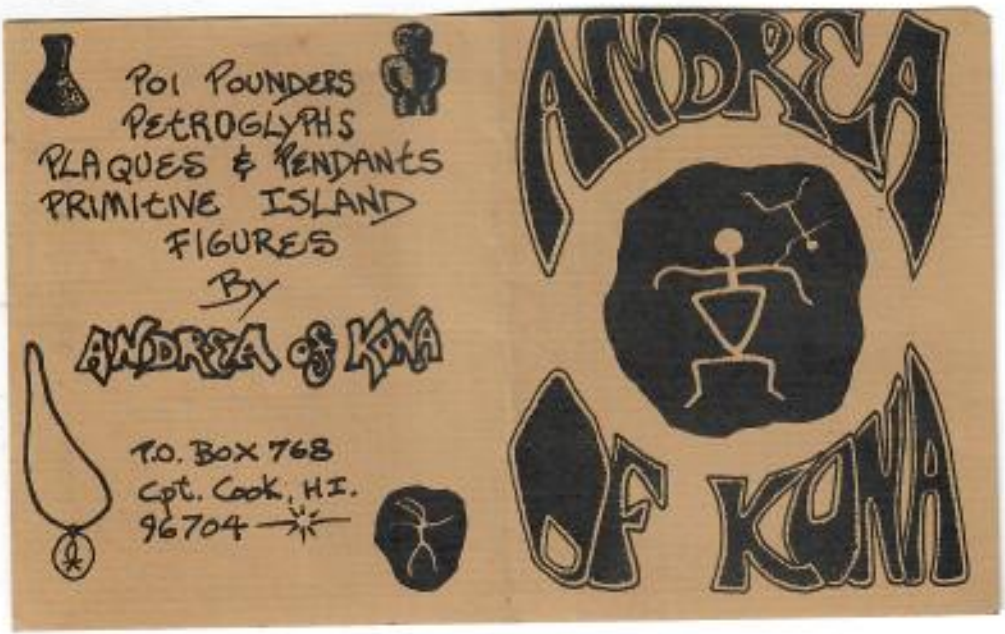 POI POUNDERS
PETROGLYPHS
PLAQUES & PENDANTS
PRIMITIVE ISLAND
FIGURES
By
ANDREA of KONA
P.O. BOX 768
Cpt. Cook, HI.
96704
ANDREA
OF KONA